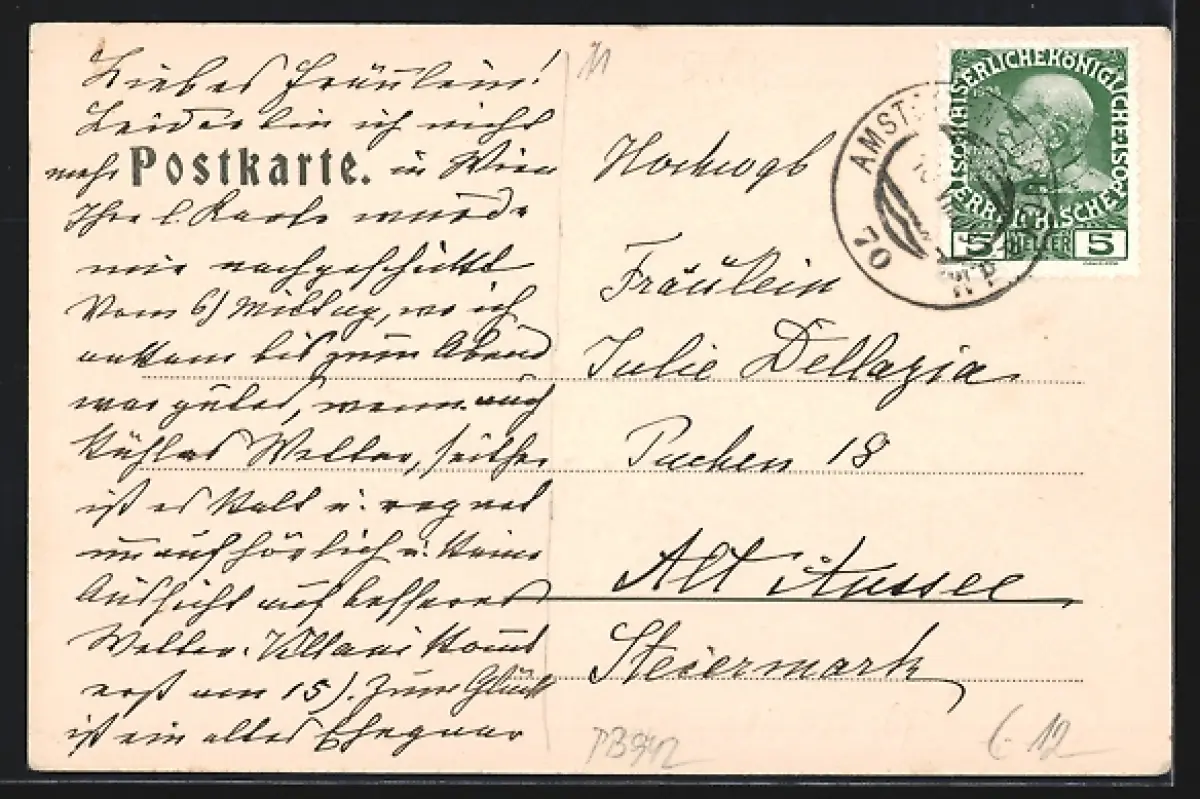 Liebes Fräulein!
Leider bin ich nicht
mehr Postkarte. in Wien
Ihre l. Karte wurde
mir nachgeschickt
Vom 6) Mittag, wo ich
ankam bis zum Abend
war gutes, wenn auch
kühles Wetter, seither
ist es kalt u. regnet
unaufhörlich u. keine
Aussicht auf besseres
Wetter. Villani kommt
erst am 15). Zum Glück
ist ein altes Ehepaar
Hochwgb
Fräulein
Julie Dellazia
Puchen 18
Alt Aussee
Steiermark
KAISERLICHEKÖNIGLICHE
ÖSTERREICHISCHEPOST
5 HELLER 5
70
PB942
6 12